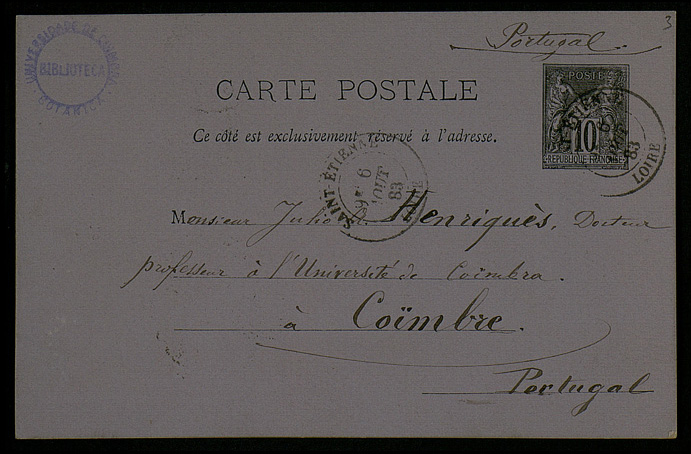 3
Portugal.
UNIVERSIDADE DE COIMBRA
BIBLIOTECA
BOTANICA
POSTE
10
REPUBLIQUE FRANÇAISE
CARTE POSTALE
Ce côté est exclusivement réservé à l'adresse.
SAINT-ÉTIENNE
6
AOUT
83
LOIRE
Monsieur Julio A. Henriquès, Docteur
professeur à l'Université de Coïmbra.
à Coïmbre.
Portugal